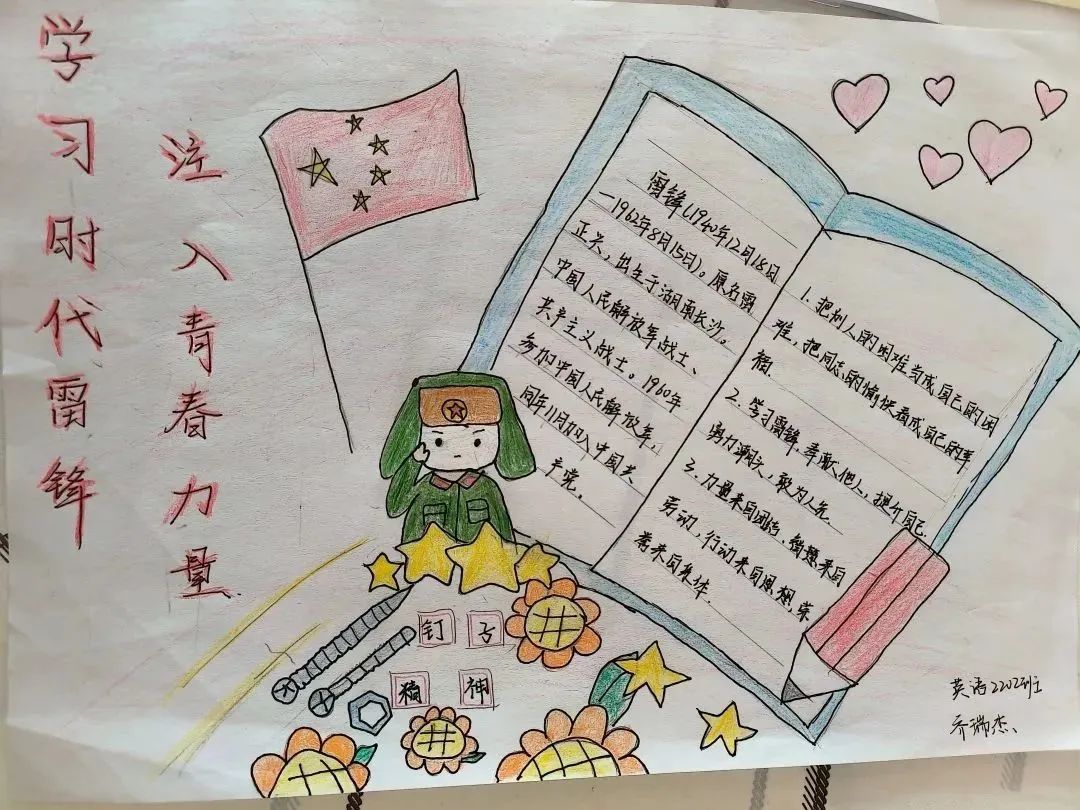 学习时代雷锋
注入青春力量
雷锋(1940年12月18日
—1962年8月15日)。原名雷
正兴,出生于湖南长沙。
中国人民解放军战士、
共产主义战士。1960年
参加中国人民解放军,
同年11月加入中国共
产党。
1.把别人的困难当成自己的困
难,把同志的愉快看成自己的幸
福
2.学习雷锋,奉献他人,提升自己
勇力潮头,敢为人先
3.力量来自团结,智慧来自
劳动,行动来自思想,荣
誉来自集体.
钉子
精神
英语2202班
乔瑞杰